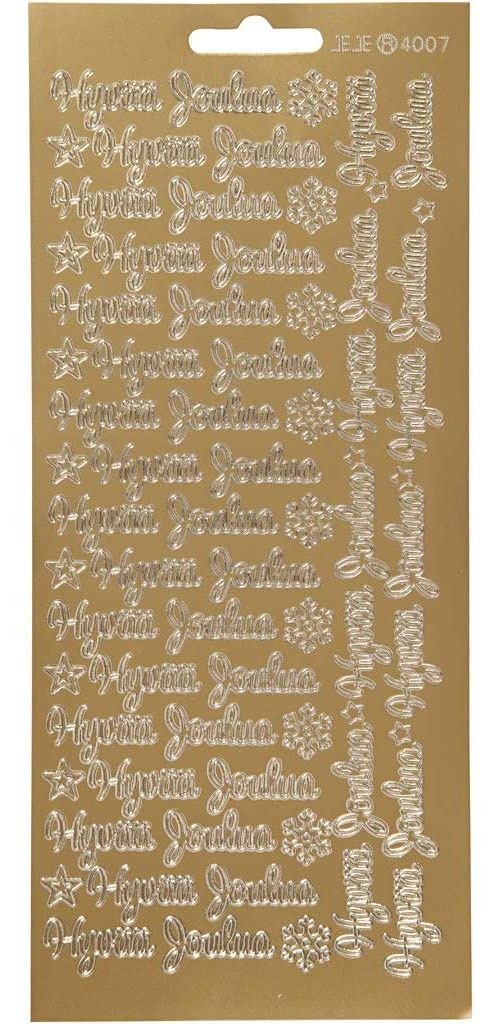 JEJE ® 4007
Hyvää Joulua
Hyvää Joulua
Hyvää Joulua
Hyvää Joulua
Hyvää Joulua
Hyvää Joulua
Hyvää Joulua
Hyvää Joulua
Hyvää Joulua
Hyvää Joulua
Hyvää Joulua
Hyvää Joulua
Hyvää Joulua
Hyvää Joulua
Hyvää Joulua
Hyvää Joulua
Hyvää Joulua
Hyvää Joulua
Hyvää Joulua
Hyvää Joulua
Hyvää
Joulua
Hyvää Joulua
Hyvää Joulua
Hyvää Joulua
Hyvää